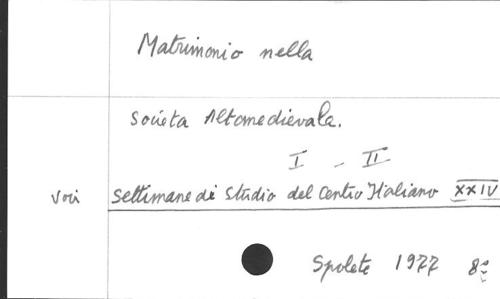 Matrimonio nella
Societa Altomedievale.
I - II
Voir Settimane di Studio del Centro Italiano XXIV
Spolete 1977 8º